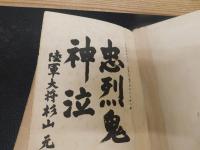 忠烈鬼
神泣
陸軍大将杉山元